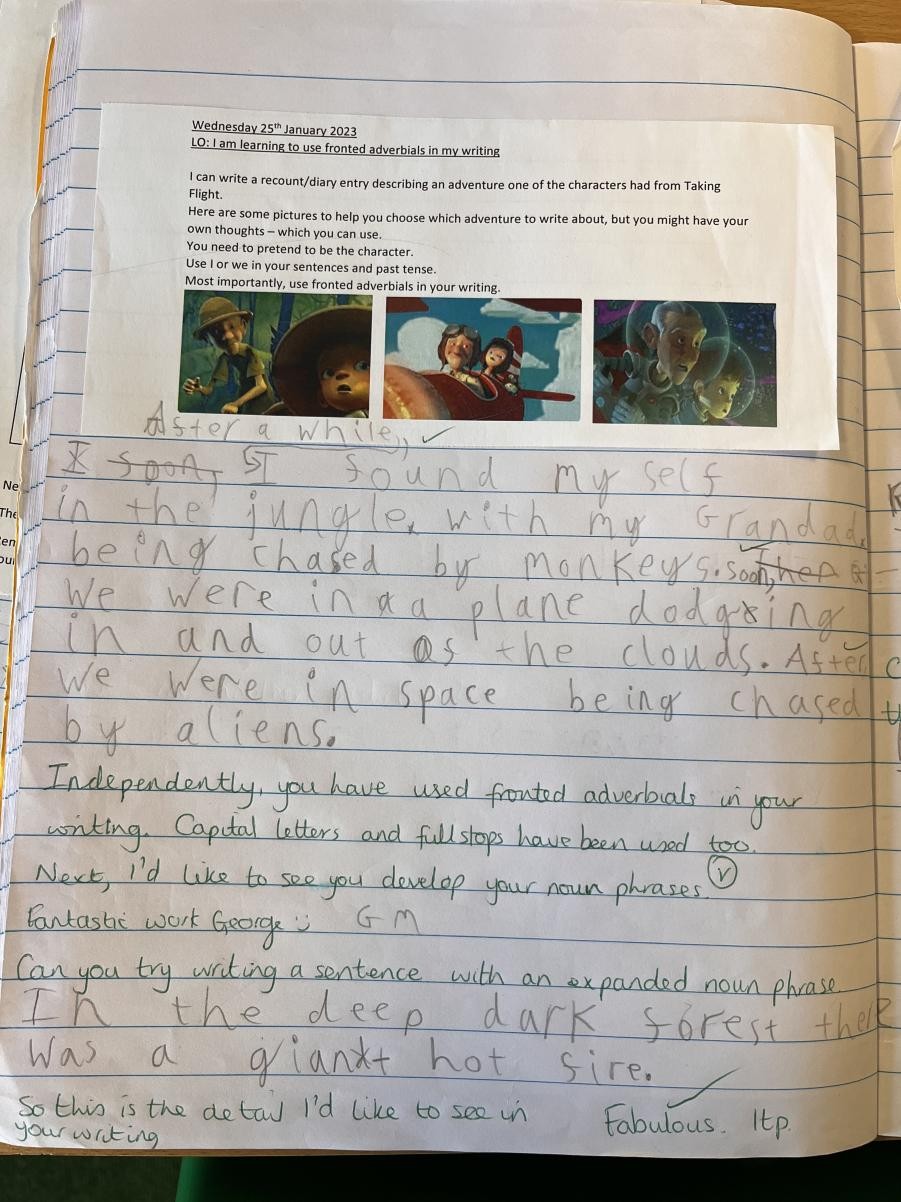 Wednesday 25th January 2023
LO: I am learning to use fronted adverbials in my writing
I can write a recount/diary entry describing an adventure one of the characters had from Taking
Flight.
Here are some pictures to help you choose which adventure to write about, but you might have your
own thoughts – which you can use.
You need to pretend to be the character.
Use I or we in your sentences and past tense.
Most importantly, use fronted adverbials in your writing.
After a while,
I soon, I found my self
in the jungle with my Grandad
being chased by monkeys. soon, then
we were in a plane dodging
in and out of the clouds. After
we were in space being chased
by aliens.
Independently, you have used fronted adverbials in your
writing. Capital letters and full stops have been used too.
Next, I'd like to see you develop your noun phrases. V
Fantastic work George :) G M
Can you try writing a sentence with an expanded noun phrase.
In the deep dark forest there
was a giant hot fire.
So this is the detail I'd like to see in
your writing
Fabulous. 1tp.
Ne
The